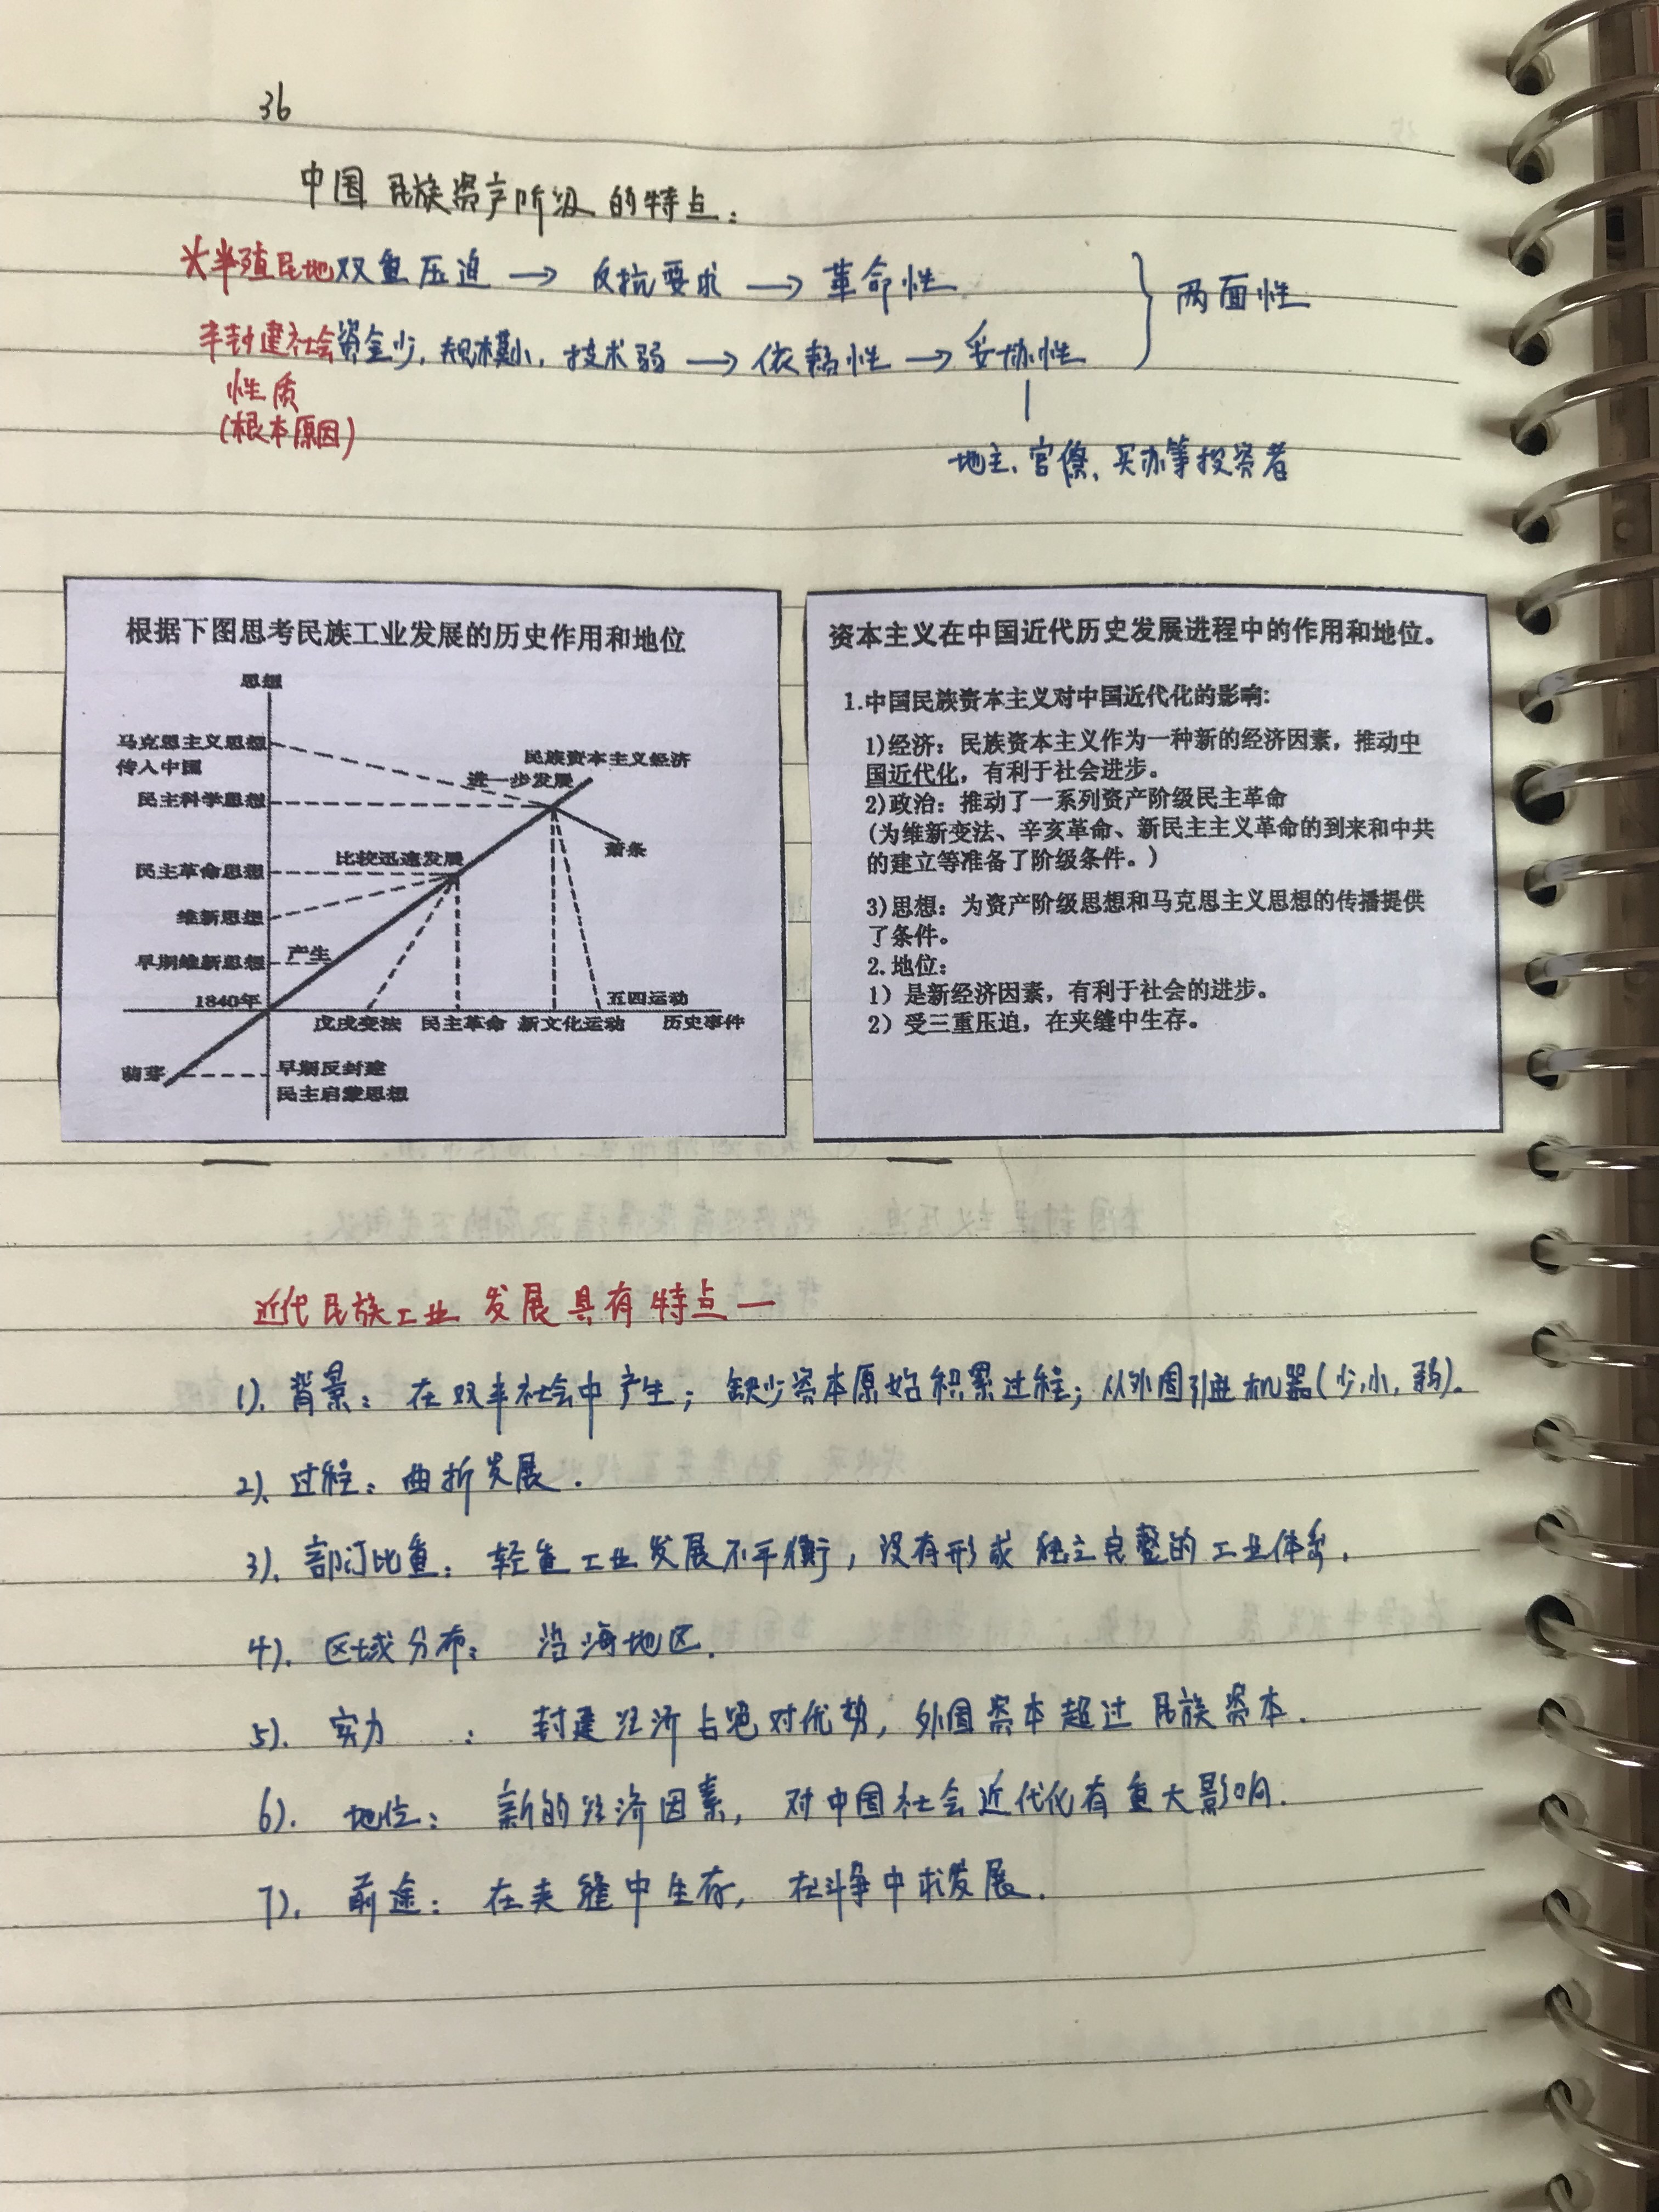 36
中国民族资产阶级的特点：
半殖民地双重压迫 → 反抗要求 → 革命性
半封建社会资金少，规模小，技术弱 → 依赖性 → 妥协性
两面性
性质
(根本原因)
地主、官僚、买办等投资者
根据下图思考民族工业发展的历史作用和地位
思想
马克思主义思想
传入中国
民族资本主义经济
进一步发展
民主科学思想
萧条
比较迅速发展
民主革命思想
维新思想
产生
早期维新思想
1840年
五四运动
戊戌变法 民主革命 新文化运动 历史事件
萌芽
早期反封建
民主启蒙思想
资本主义在中国近代历史发展进程中的作用和地位。
1.中国民族资本主义对中国近代化的影响:
1)经济：民族资本主义作为一种新的经济因素，推动中
国近代化，有利于社会进步。
2)政治：推动了一系列资产阶级民主革命
(为维新变法、辛亥革命、新民主主义革命的到来和中共
的建立等准备了阶级条件。)
3)思想：为资产阶级思想和马克思主义思想的传播提供
了条件。
2.地位：
1）是新经济因素，有利于社会的进步。
2）受三重压迫，在夹缝中生存。
近代民族工业发展具有特点—
1).背景：在双半社会中产生；缺少资本原始积累过程；从外国引进机器(少,小,弱)。
2).过程：曲折发展.
3).部门比重：轻重工业发展不平衡，没有形成独立完整的工业体系.
4).区域分布：沿海地区.
5).实力：封建经济占绝对优势，外国资本超过民族资本.
6).地位：新的经济因素，对中国社会近代化有重大影响.
7).前途：在夹缝中生存，在斗争中求发展.